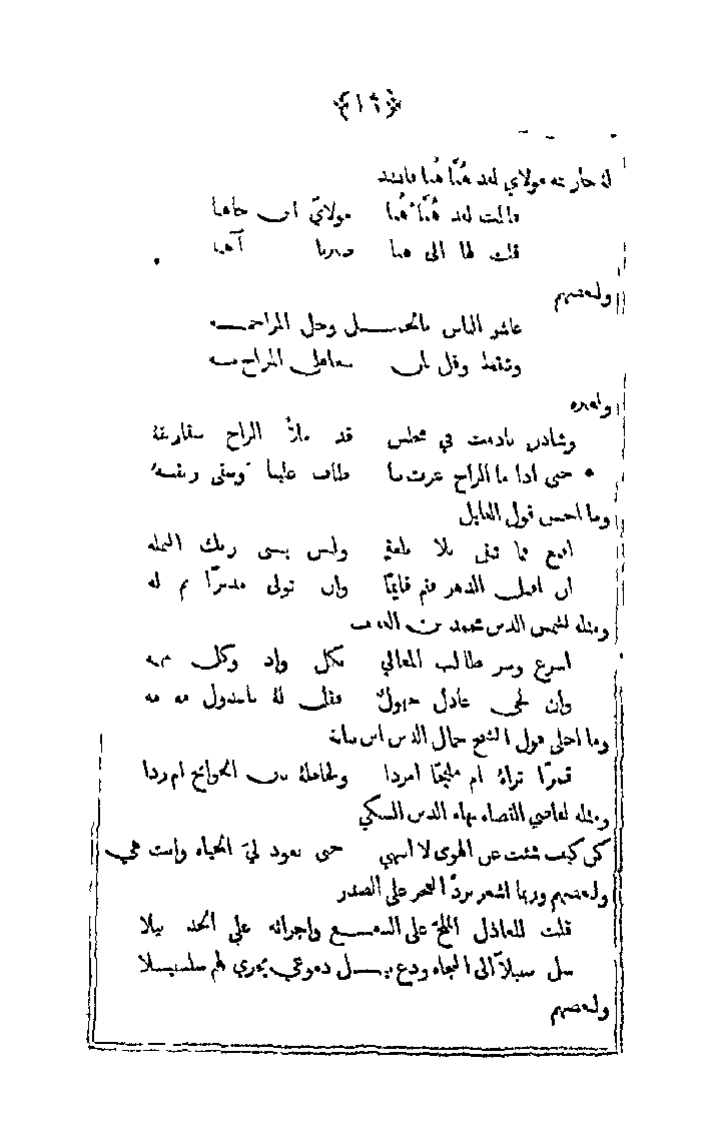 ﴿١٦﴾
له جاريته مولاي لقد هُنَّا هُنا فانشد
قالت لقد هُنَّا هُنا مولايَ اين جاهنا
قلت لها الى هنا صرنا آهنا
ولبعضهم
عاشر الناس بالجميل وخل المزاحمه
وتيقظ وقل لمن يتعاطى المزاح مه
ولغيره
وشادن نادمت في مجلس قد ملأ الراح
حتى اذا ما الراح طاف علينا وسقى ريقه
وما احسن قول القايل
اقنع فما تبقى بلا بلغة وليس ينسى ربك النمله
ان اقبل الدهر فقم قايمًا وان تولى مدبرًا نم له
ومثله لشمس الدين محمد بن العفيف
اسرع وسر طالب المعالي بكل واد وكل مهمه
وان لحى عاذل جهولٌ فقل له ياعذول مه مه
وما احلى قول الشيخ جمال الدين ابن نباته
قمرًا تراهُ ام مليحًا امردا ولحاظهُ بين الجوانح ام ردا
ومثله لقاضي القضاه بهاء الدين السبكي
كن كيف شئت عن الهوى لا انتهي حتى تعود ليَ الحياه وانت هي
ولبعضهم وربما اشعر بردّ العجز على الصدر
قلت للعاذل الملحّ على الدمع واجرائه على الخد نيلا
سل سبيلاً الى النجاه ودع نيل دموعي يجري لهم سلسبيلا
ولبعضهم